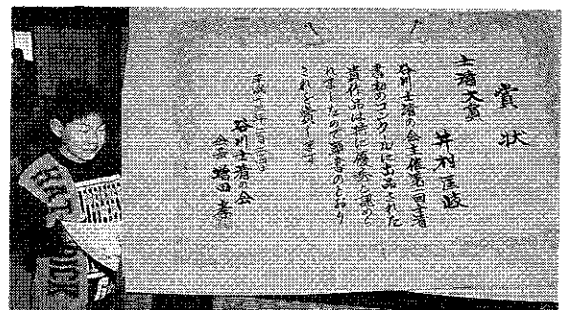 賞状
士清大賞
井村匡肢
谷川士清の会主催第一回士清
書初めコンクールに出品された
貴作品は特に優秀と認め
られましたので頭書のとおり
これを賞します
谷川士清の会
会長